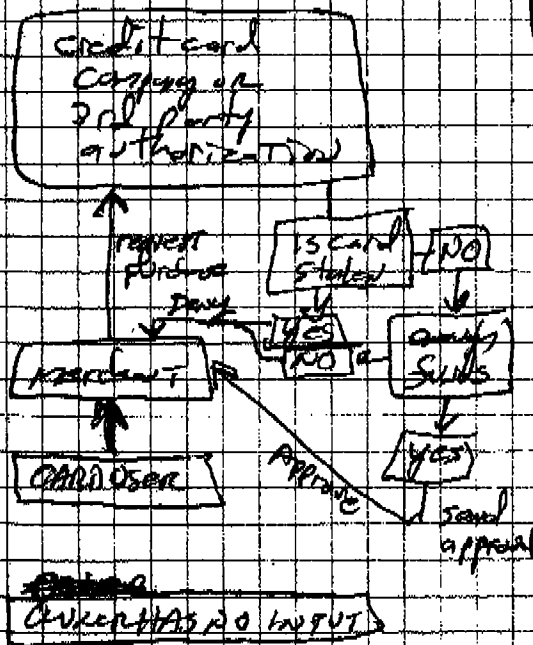 credit card
company or
3rd party
authorization
request
purchase
is card
stolen
NO
Deny
yes
NO
enough
funds
merchant
yes
CARD USER
Approve
send
approval
OWNER HAS NO INPUT